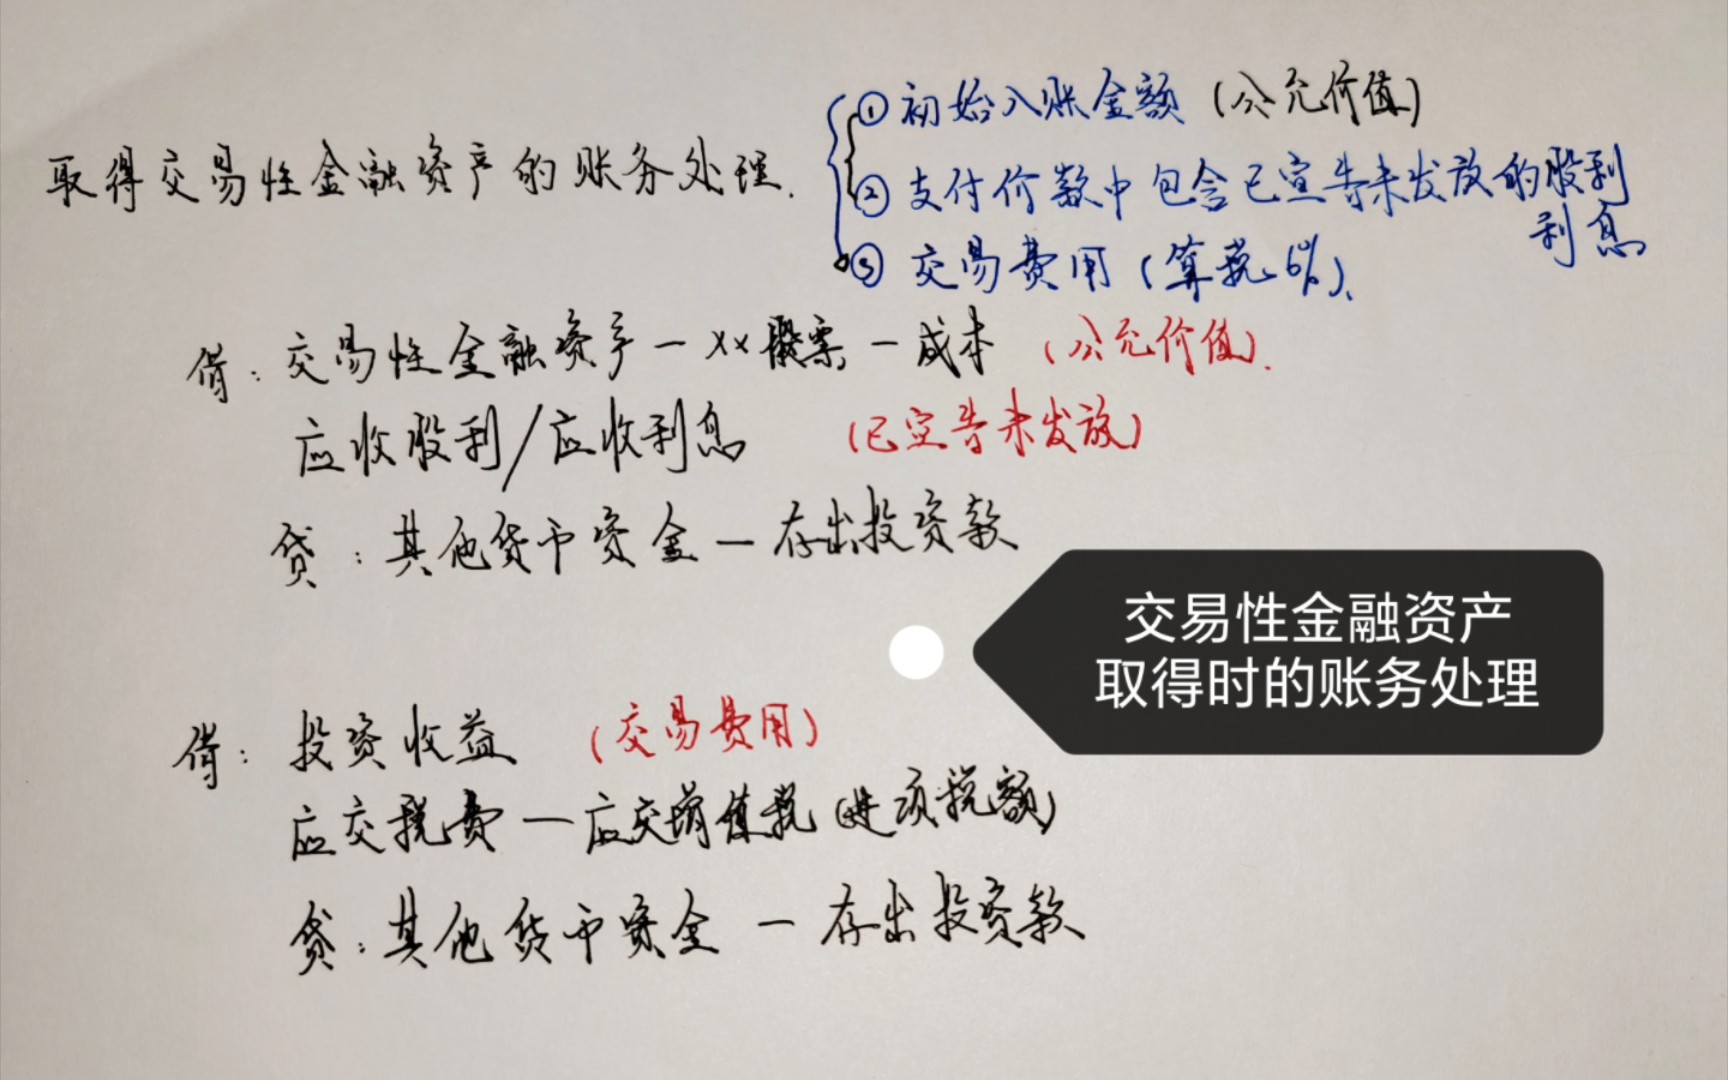 取得交易性金融资产的账务处理.
①初始入账金额(公允价值)
②支付价款中包含已宣告未发放的股利
利息
③交易费用(算税6%).
借:交易性金融资产—xx股票—成本(公允价值).
应收股利/应收利息(已宣告未发放)
贷:其他货币资金—存出投资款
交易性金融资产
取得时的账务处理
借:投资收益(交易费用)
应交税费—应交增值税(进项税额)
贷:其他货币资金—存出投资款